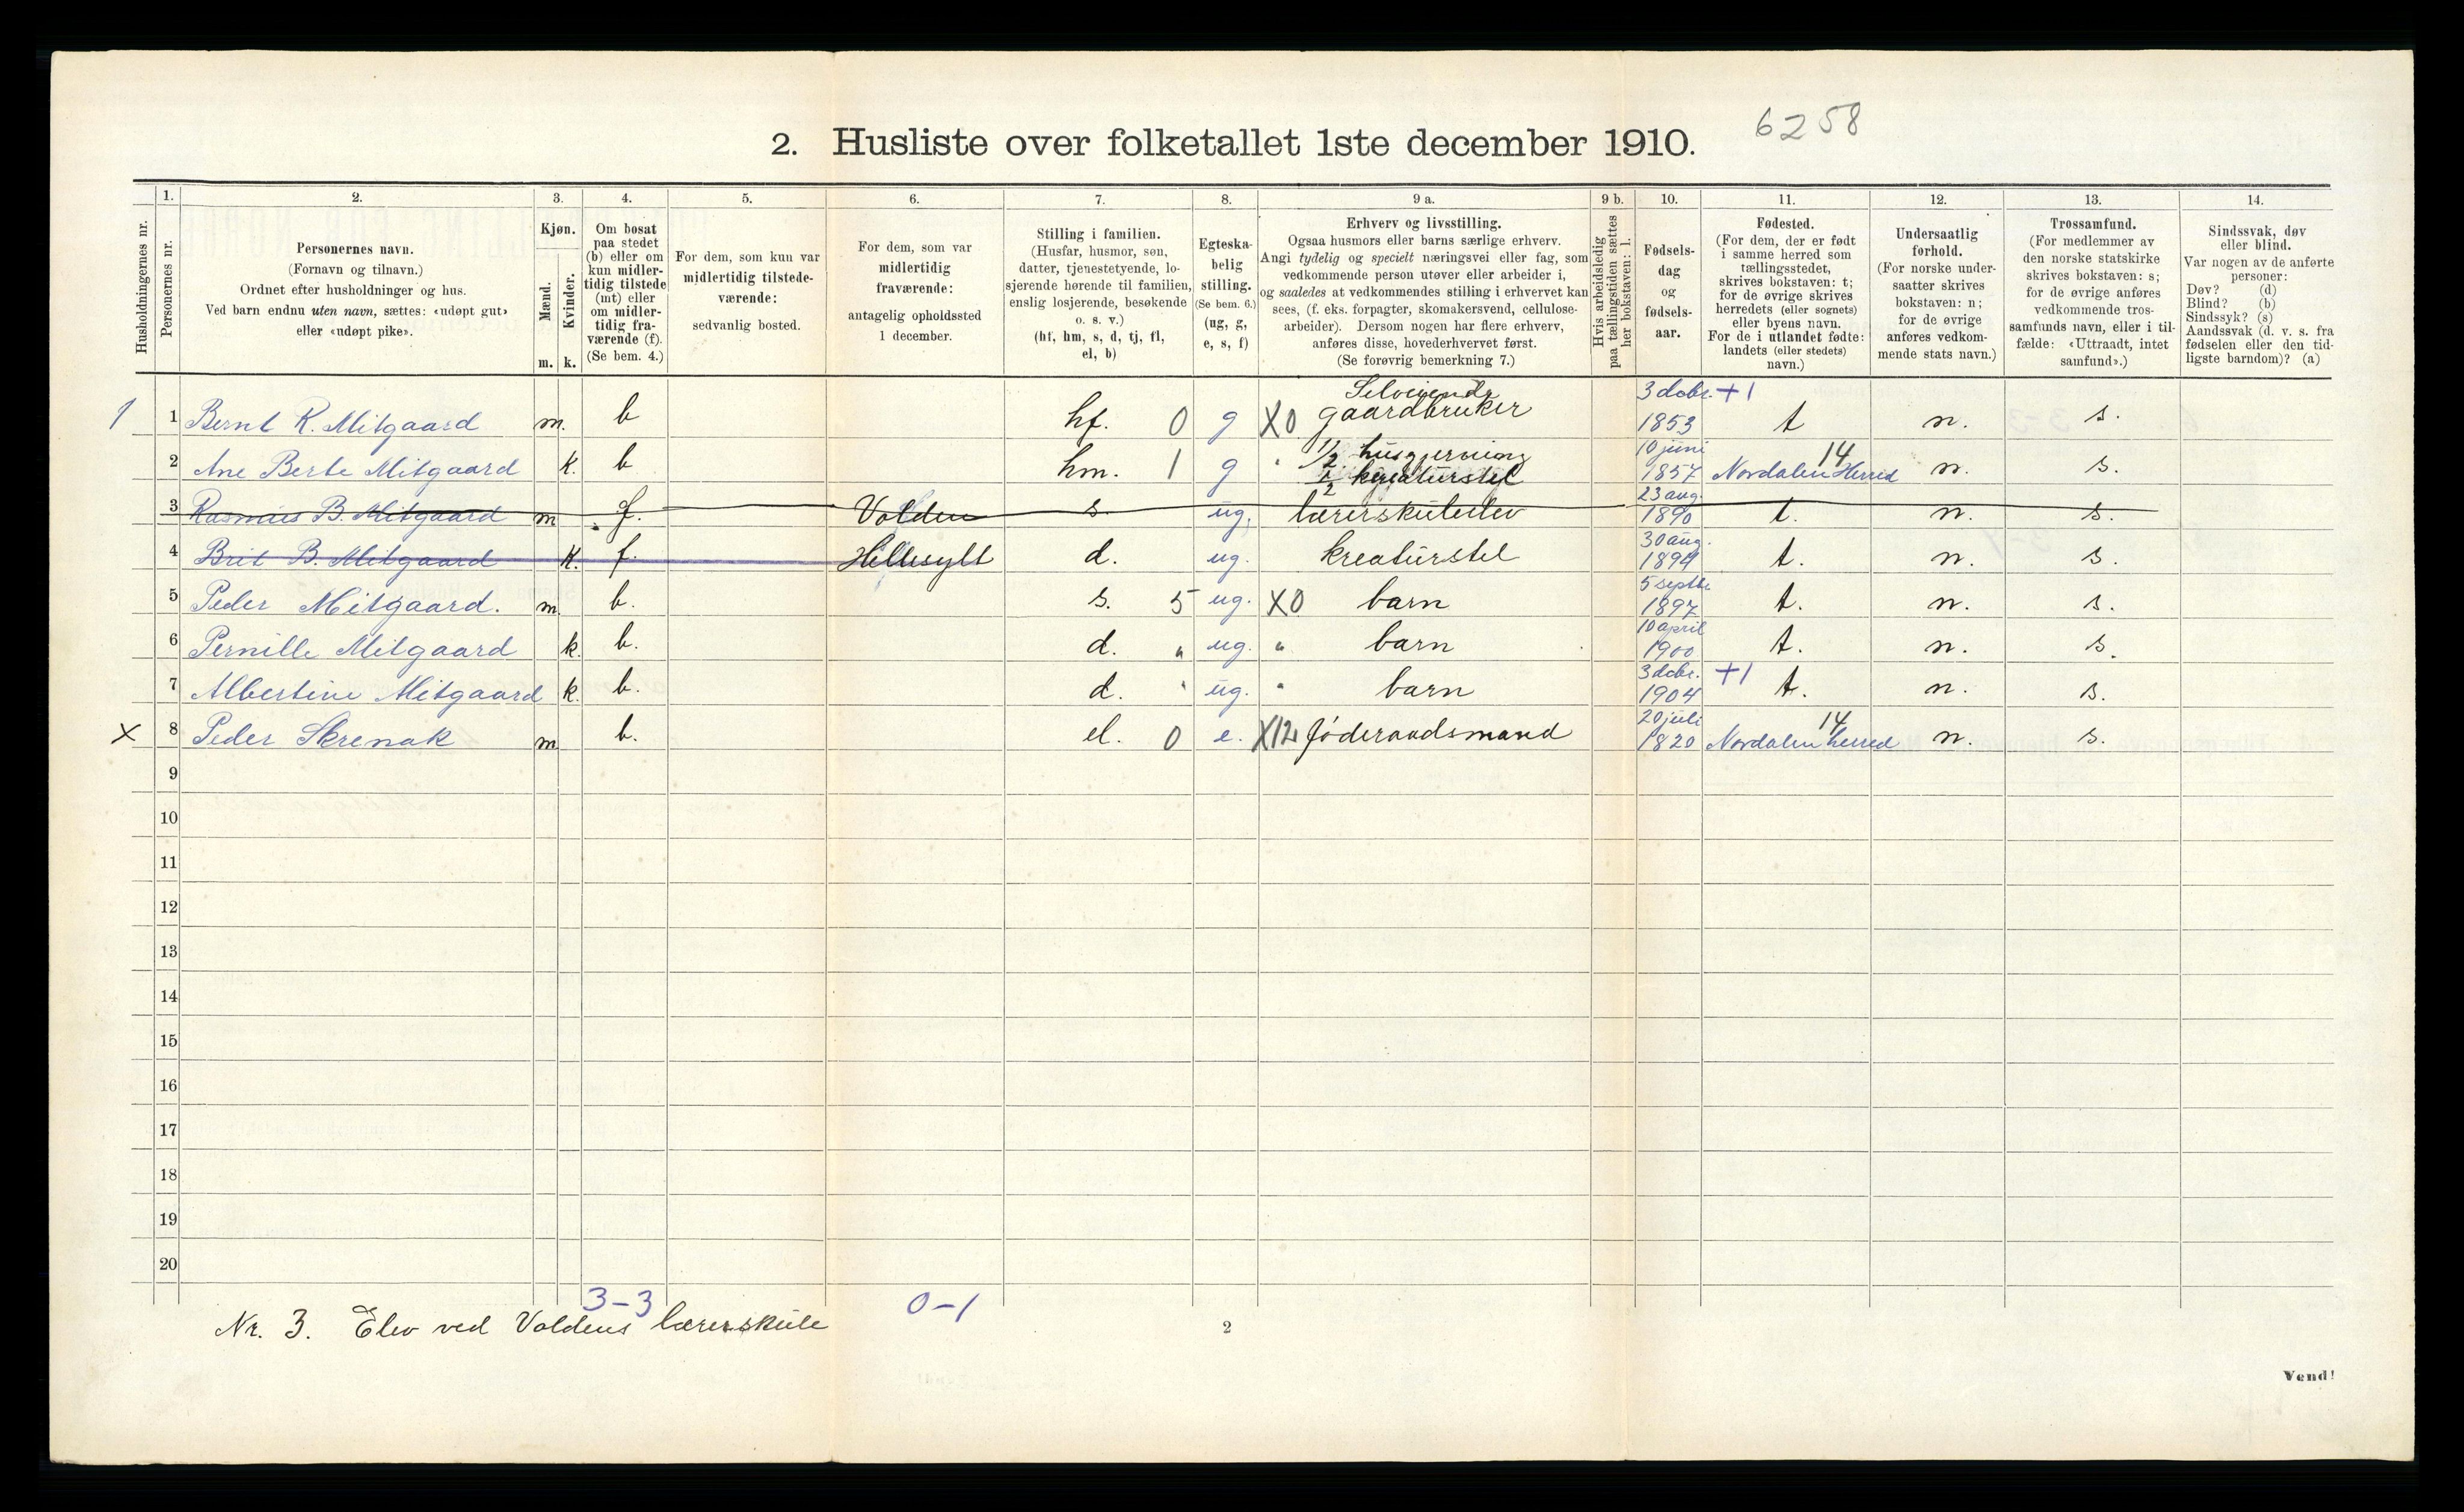 6258
2. Husliste over folketallet 1ste december 1910.
Husholdningernes nr.
1.
Personernes nr.
2.
Personernes navn.
(Fornavn og tilnavn.)
Ordnet efter husholdninger og hus.
Ved barn endnu uten navn, sættes: «udøpt gut»
eller «udøpt pike».
3.
Kjøn.
Mænd.
Kvinder.
m. k.
4.
Om bosat
paa stedet
(b) eller om
kun midler-
tidig tilstede
(mt) eller
om midler-
tidig fra-
værende (f).
(Se bem. 4.)
5.
For dem, som kun var
midlertidig tilstede-
værende:
sedvanlig bosted.
6.
For dem, som var
midlertidig
fraværende:
antagelig opholdssted
1 december.
7.
Stilling i familien.
(Husfar, husmor, søn,
datter, tjenestetyende, lo-
sjerende hørende til familien,
enslig losjerende, besøkende
o. s. v.)
(hf, hm, s, d, tj, fl,
el, b)
8.
Egteska-
belig
stilling.
(Se bem. 6.)
(ug, g,
e, s, f)
9 a.
Erhverv og livsstilling.
Ogsaa husmors eller barns særlige erhverv.
Angi tydelig og specielt næringsvei eller fag, som
vedkommende person utøver eller arbeider i,
og saaledes at vedkommendes stilling i erhvervet kan
sees, (f. eks. forpagter, skomakersvend, cellulose-
arbeider). Dersom nogen har flere erhverv,
anføres disse, hovederhvervet først.
(Se forøvrig bemerkning 7.)
9 b.
Hvis arbeidsledig
paa tællingstiden sættes
her bokstaven: l.
10.
Fødsels-
dag
og
fødsels-
aar.
11.
Fødested.
(For dem, der er født
i samme herred som
tællingsstedet,
skrives bokstaven: t;
for de øvrige skrives
herredets (eller sognets)
eller byens navn.
For de i utlandet fødte:
landets (eller stedets)
navn.)
12.
Undersaatlig
forhold.
(For norske under-
saatter skrives
bokstaven: n;
for de øvrige
anføres vedkom-
mende stats navn.)
13.
Trossamfund.
(For medlemmer av
den norske statskirke
skrives bokstaven: s;
for de øvrige anføres
vedkommende tros-
samfunds navn, eller i til-
fælde: «Uttraadt, intet
samfund».)
14.
Sindssvak, døv
eller blind.
Var nogen av de anførte
personer:
Døv? (d)
Blind? (b)
Sindssyk? (s)
Aandssvak (d. v. s. fra
fødselen eller den tid-
ligste barndom)? (a)
1 1 Bernt R. Mitgaard m. b hf. 0 g X0 Selveiende gaardbruker 3 dcbr. +1 1853 t n. s.
2 Ane Berte Mitgaard k. b hm. 1 g " 1/2 husgjerning 1/2 kreaturstel 10 juni 1857 Nordalen Herred 14 n. s.
3 Rasmus B. Mitgaard m f. Volden s. ug. lærerskuleelev 23 aug. 1890 t. n. s.
4 Brit B. Mitgaard k. f. Hellesylt d. ug. kreaturstel 30 aug. 1894 t. n. s.
5 Peder Mitgaard. m. b. s. 5 ug. X0 barn 5 septbr 1897 t. n. s.
6 Pernille Mitgaard k. b. d. " ug. " barn 10 april 1900 t. n. s.
7 Albertine Mitgaard k. b. d. " ug. " barn 3 dcbr. +1 1904 t. n. s.
X 8 Peder Skrenak m b. el. 0 e. X12 føderaadsmand 20 juli 1820 Nordalen herred 14 n. s.
9
10
11
12
13
14
15
16
17
18
19
20
3-3 0-1
Nr. 3. Elev ved Voldens lærerskule
2
Vend!